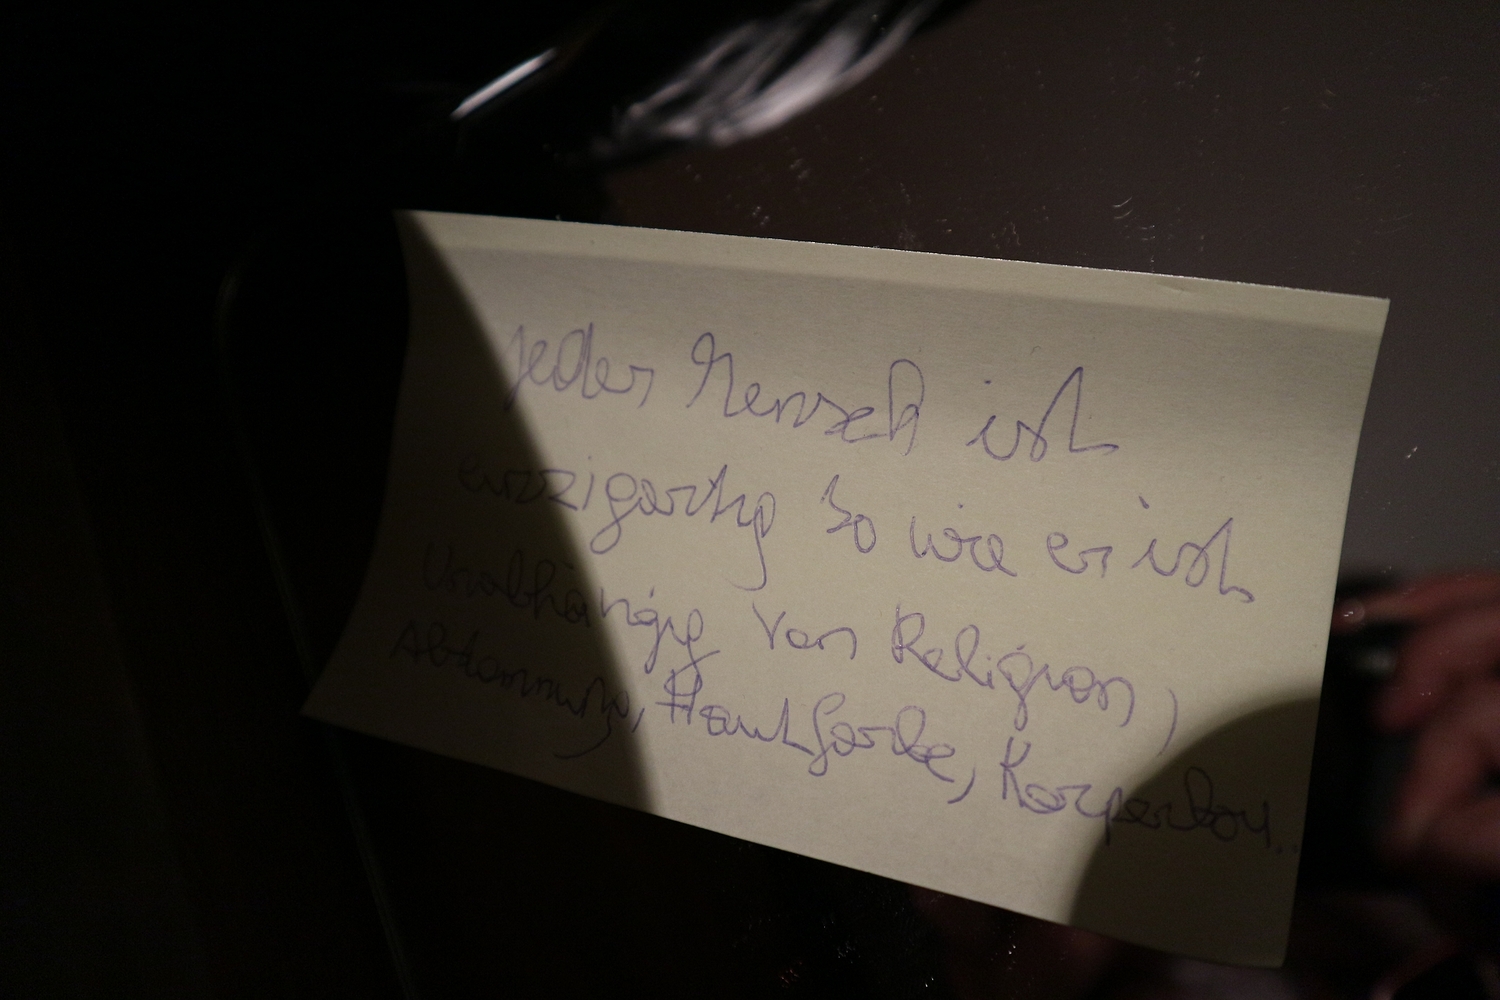 Jeder Mensch ist
einzigartig so wie er ist
Unabhängig von Religion,
Abstammung, Hautfarbe, Körperbau..